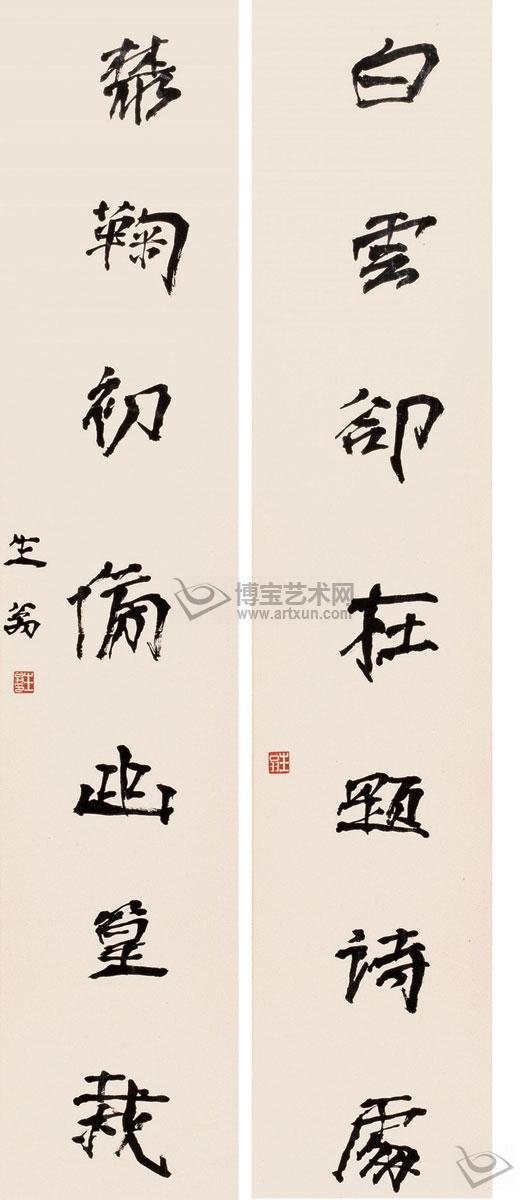 白雲卻在題詩處
叢鞠初備幽篁栽
生翁
博宝艺术网
www.artxun.com